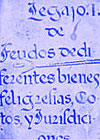 Legajo. 1.
de
Feudos de di
ferentes bienes
feligresias, Co
tos, y Jurisdici
ones